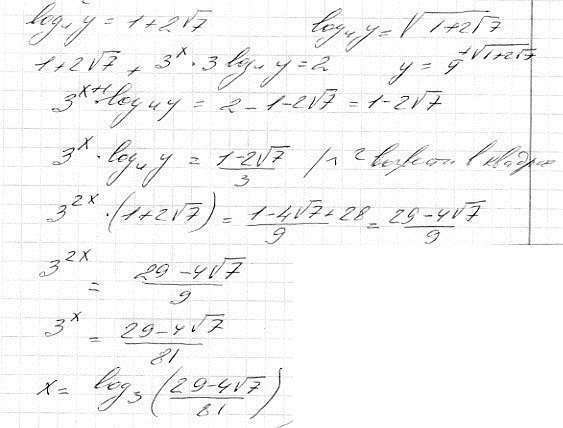 log₄²y = 1+2√7 log₄ y = √(1+2√7)
1+2√7 + 3^x · 3 log₄ y = 2 y = 4^(±√(1+2√7))
3^(x+1) · log₄ y = 2 - 1 - 2√7 = 1-2√7
3^x · log₄ y = (1-2√7)/3 / ^2 в квадрат
3^(2x) · (1+2√7) = (1-4√7+28)/9 = (29-4√7)/9
3^(2x) = (29-4√7)/9
3^x = (29-4√7)/81
x = log₃ ((29-4√7)/81)